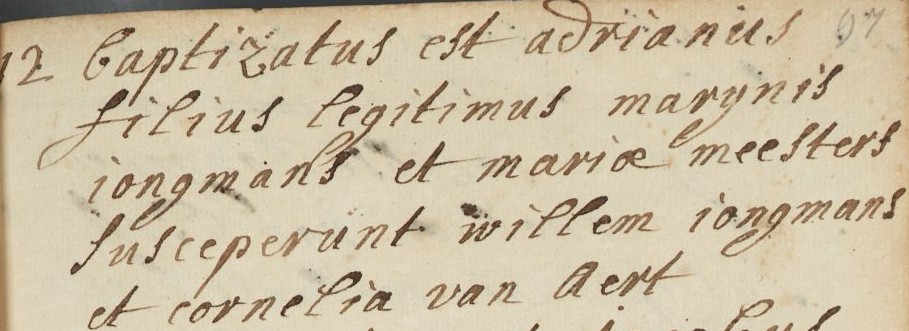 12 baptizatus est adrianus 97
filius legitimus marynis
iongmans et mariæ meesters
susceperunt willem iongmans
et cornelia van Aert